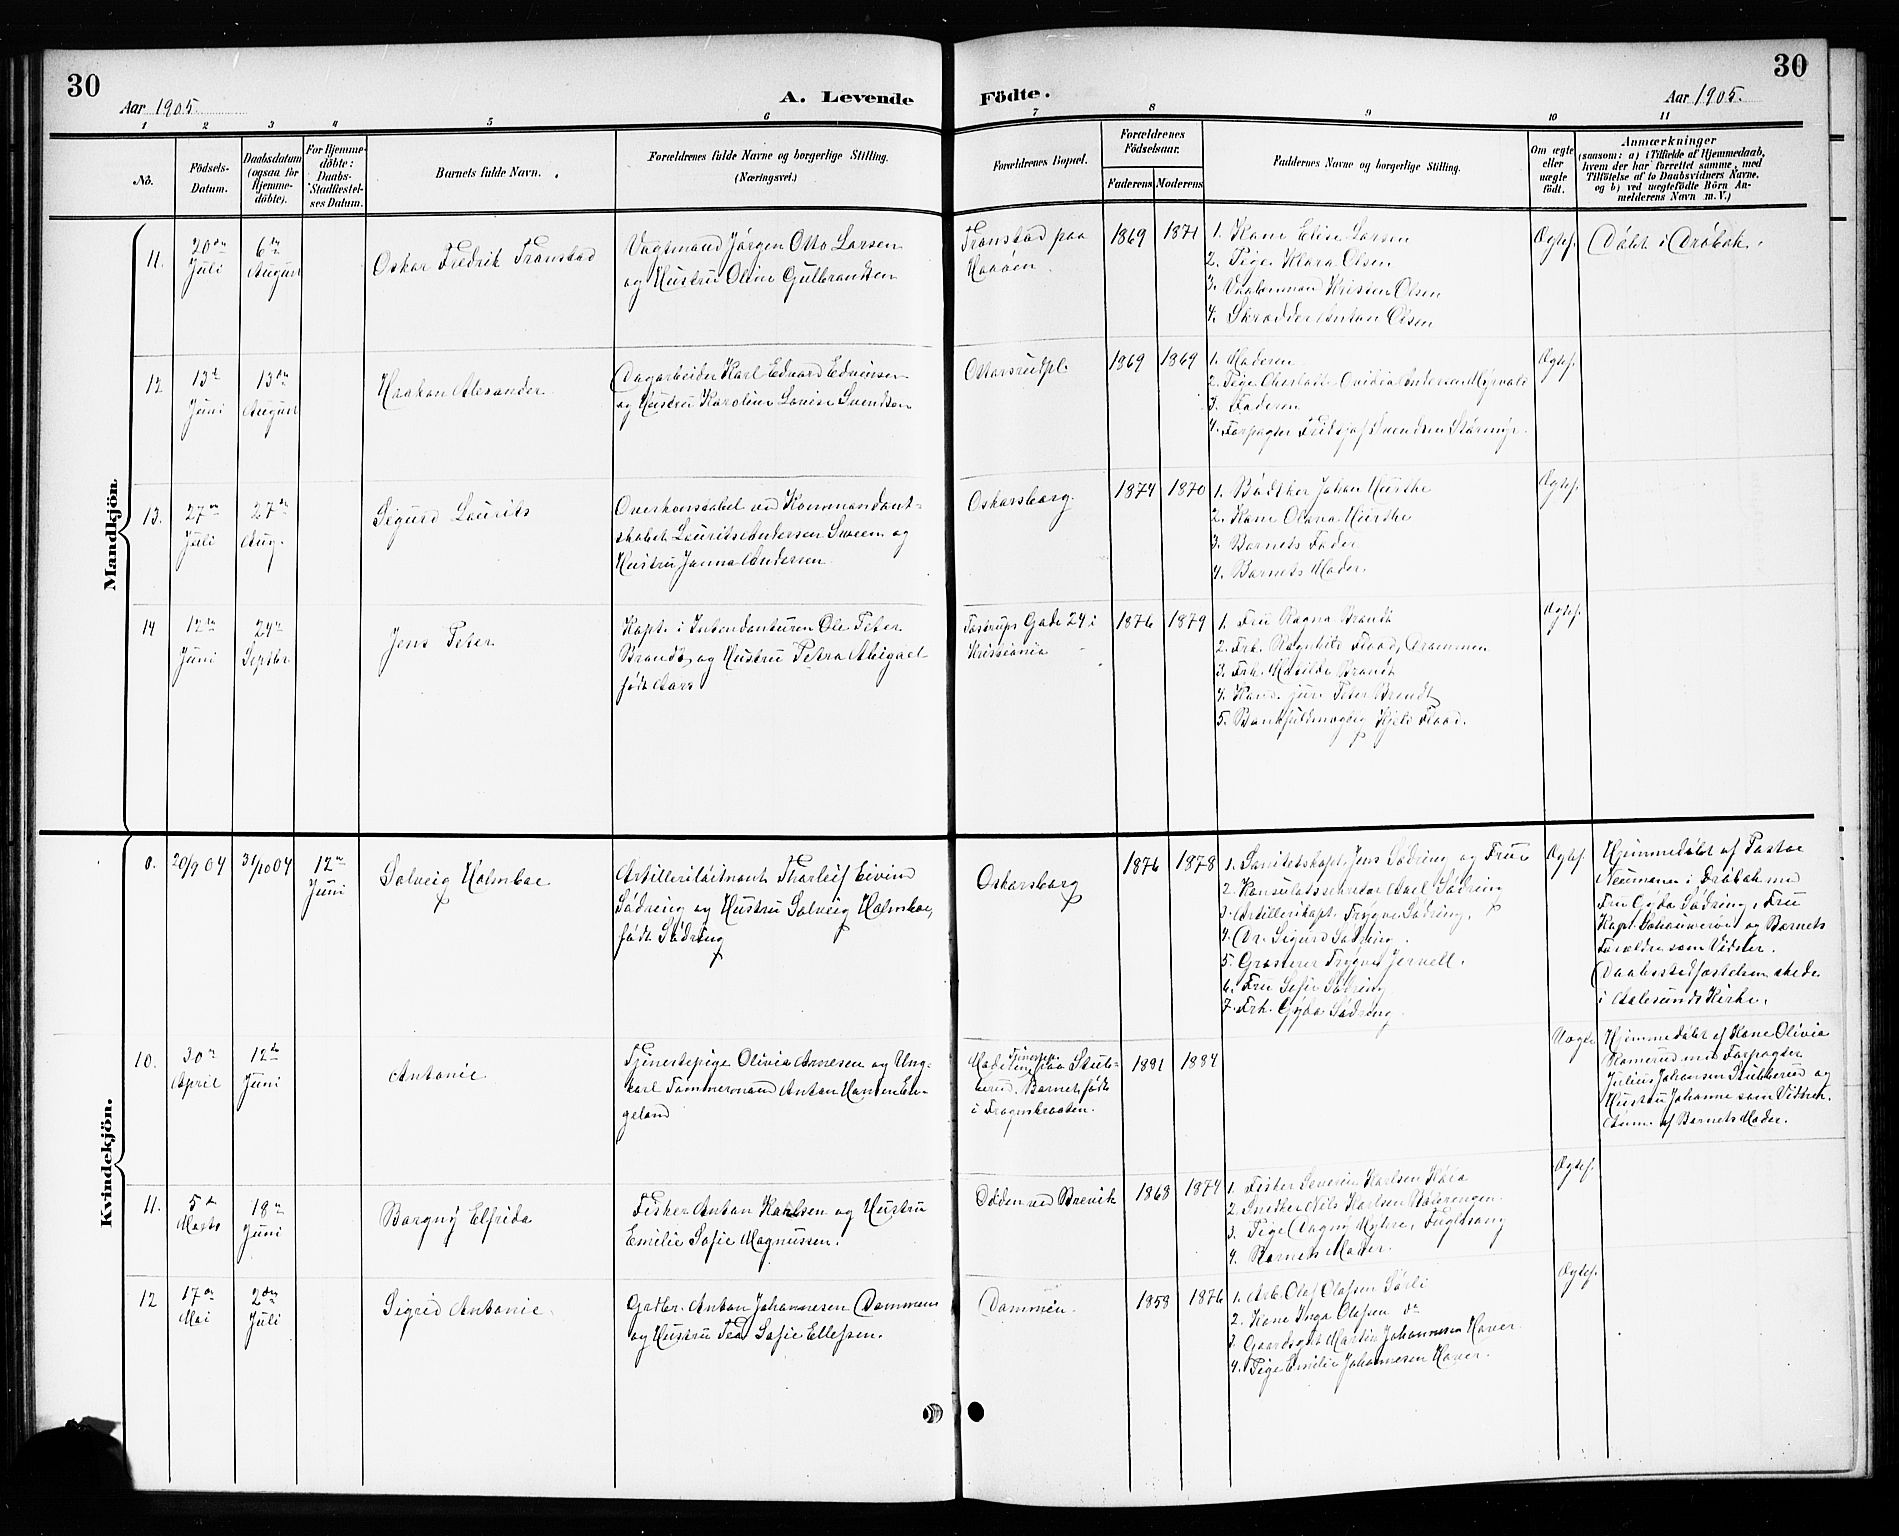 30
Aar 1905.
A. Levende
Födte.
Aar 1905.
30
1 2 3 4 5 6 7 8 9 10 11
No.
Födsels-
Datum.
Daabsdatum
(ogsaa for
Hjemme-
döbte).
For Hjemme-
döbte:
Daabs-
Stadfæstel-
ses Datum.
Barnets fulde Navn.
Forældrenes fulde Navne og borgerlige Stilling.
(Næringsvei.)
Forældrenes Bopæl.
Forældrenes
Födselsaar.
Faderens
Moderens
Faddernes Navne og borgerlige Stilling.
Om ægte
eller
uægte
födt.
Anmærkninger
(saasom: a) i Tilfælde af Hjemmedaab,
hvem der har forrettet samme, med
Tilföielse af to Daabsvidners Navne.
og b) ved uægtefödte Börn An-
melderens Navn m. V.)
Mandkjön
11.
20de
Juli
6te
August
Oskar Fredrik Tronstad
Vagtmand Jørgen Otto Larsen
og Hustru Oline Gulbrandsen
Tronstad paa
Haaøen
1869
1871
1. Kone Elise Larsen
2. Pige Klara Olsen
3. Kristen Olsen
4. Skrædder Anton Olsen
Ægtef.
Døbt i Drøbak.
12
13de
Juni
13de
August
Haakon Alexander
Dagarbeider Karl Edvard Edvinsen
og Hustru Karoline Lovise Svendsen
Oskarsrudpl.
1869
1869
1. Moderen
2. Pige Charlotte Ovidia Andersen Myrvold
3. Faderen
4. Forpagter Fridtjof Svendsen
Ægtef.
13.
27de
Juli
27de
Aug.
Sigurd Laurits
Overkonstabel ved Kommandant-
skabet Laurits Andersen Sween og
Hustru Janna Andersen
Oskarsborg.
1874
1870
1. Bødker Johan Hurthe
2. Kone Olava Hurthe
3. Barnets Fader
4. Barnets Moder.
Ægtef.
14
12te
Juni
24de
Septbr
Jens Peter
Kapt. i Intendanturen Ole Peter
Brandt og Hustru Petra Abigael
født Aars
Tostrups Gade 24 i
Kristiania
1876
1879
1. Fru Ragna Brandt
2. Frk. Ragnhild Flood, Drammen
3. Frk. Mathilde Brandt
4. Kand. jur. Peter Brandt
5. Bankfuldmægtig Kjeld Flood.
Ægtef.
Kvindekjön.
0.
20/9 04
31/10 04
12te
Juni
Solveig Holmboe
Artilleriløitnant Thorleif Eivind
Sødring og Hustru Solveig Holmboe,
født Sødring
Oskarsborg
1876
1878
1. Sanitetskapt. Jens Sødring og Frue
2. Konsulatssekretær Axel Sødring
3. Artillerikapt. Trygve Sødring.
4. Dr. Sigurd Sødring.
5. Grosserer Trygve Jervell.
6. Fru Sofie Sødring
7. Frk. Gyda Sødring.
Ægtef.
Hjemmedøbt af Pastor
Neumann i Drøbak med
Fru Gyda Sødring, Fru
Kapt. og Barnets
Forældre som Vidner.
Daabsstadfæstelsen skede
i Aalesunds Kirke.
10.
30te
April
12te
Juni
Antonie
Tjenestepige Olivia Arnesen og Ung-
karl Tømmermand Anton Hansen En-
geland
Moderen Tjenestep. paa Stub-
berud. Barnet født
i Frognskraaten.
1891
1884
Uægte
Hjemmedøbt af Kone Olivia
Homerud med Forpagter
Julius Johansen Stubberud og
Hustru Johanne som Vidner.
Anm. af Barnets Moder.
11.
5te
Marts
18de
Juni
Borgny Elfrida
Fisker Anton Karlsen og Hustru
Emilie Sofie Magnussen.
Odden ved Brevik
1868
1874
1. Fisker Severin Karlsen
2. Snedker Nils Karlsen Vaalerengen
3. Pige Dagny Myhre, Fuglesang
4. Barnets Moder.
Ægtef.
12
17de
Mai
2den
Juli
Sigrid Antonie.
Grdbr. Anton Johannesen Dammen
og Hustru Tea Sofie Ellefsen.
Dammen
1858
1876
1. Arb. Olaf Olafsen Sørli
2. Kone Inga Olafsen do
3. Gaardsgut Martin Johannesen Haver.
4. Pige Emilie Johannesen Haver.
Ægtef.